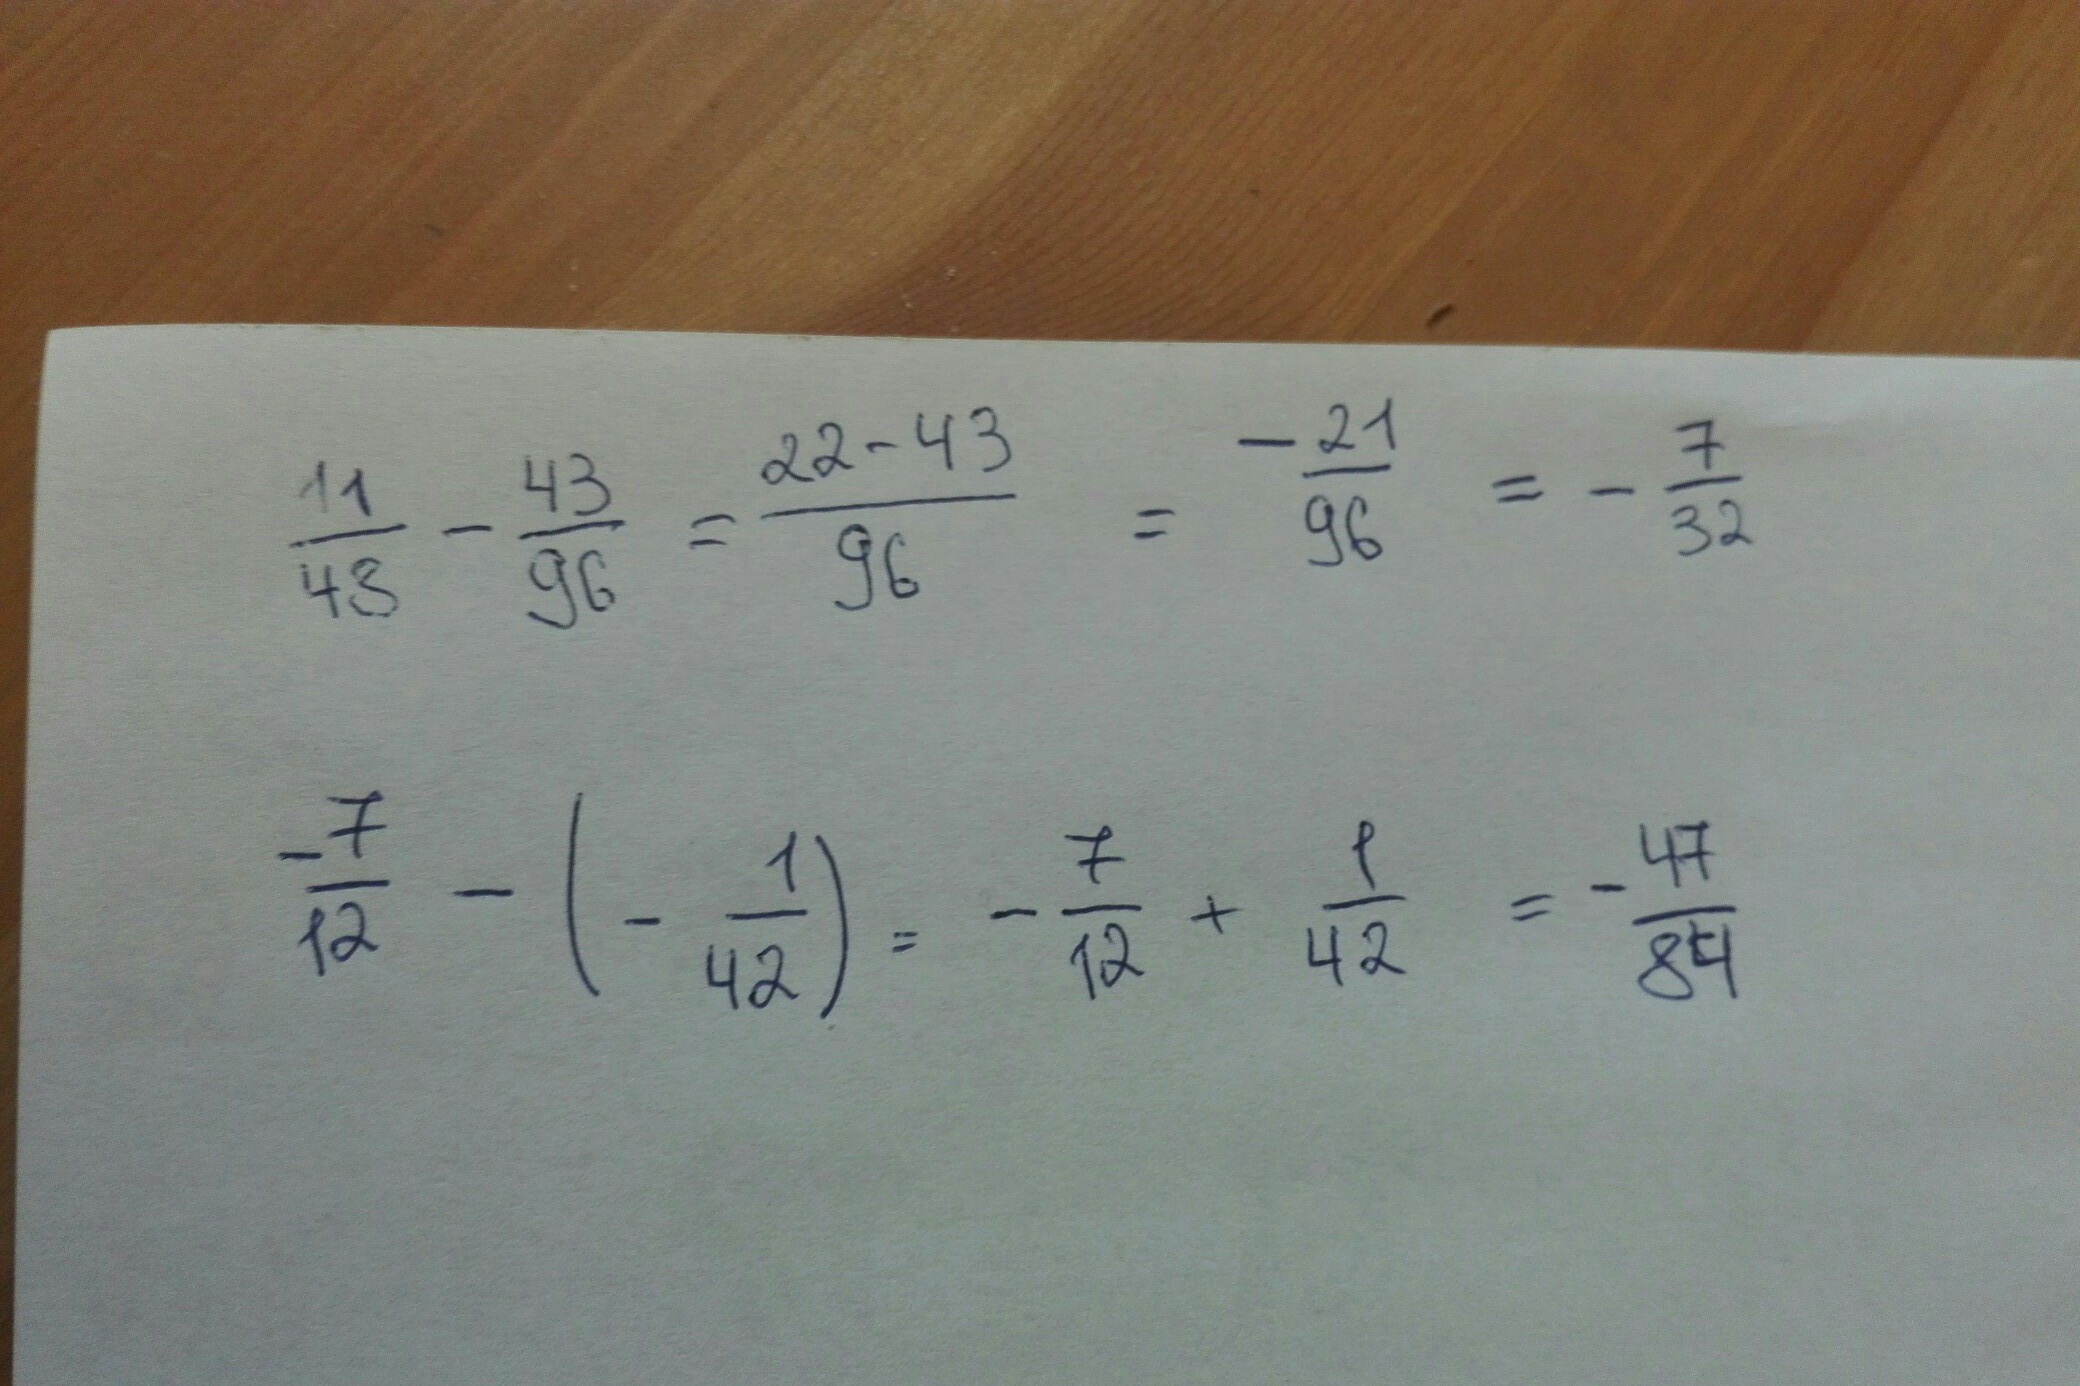 11/48 - 43/96 = 22-43/96 = -21/96 = -7/32
-7/12 - (-1/42) = -7/12 + 1/42 = -47/84